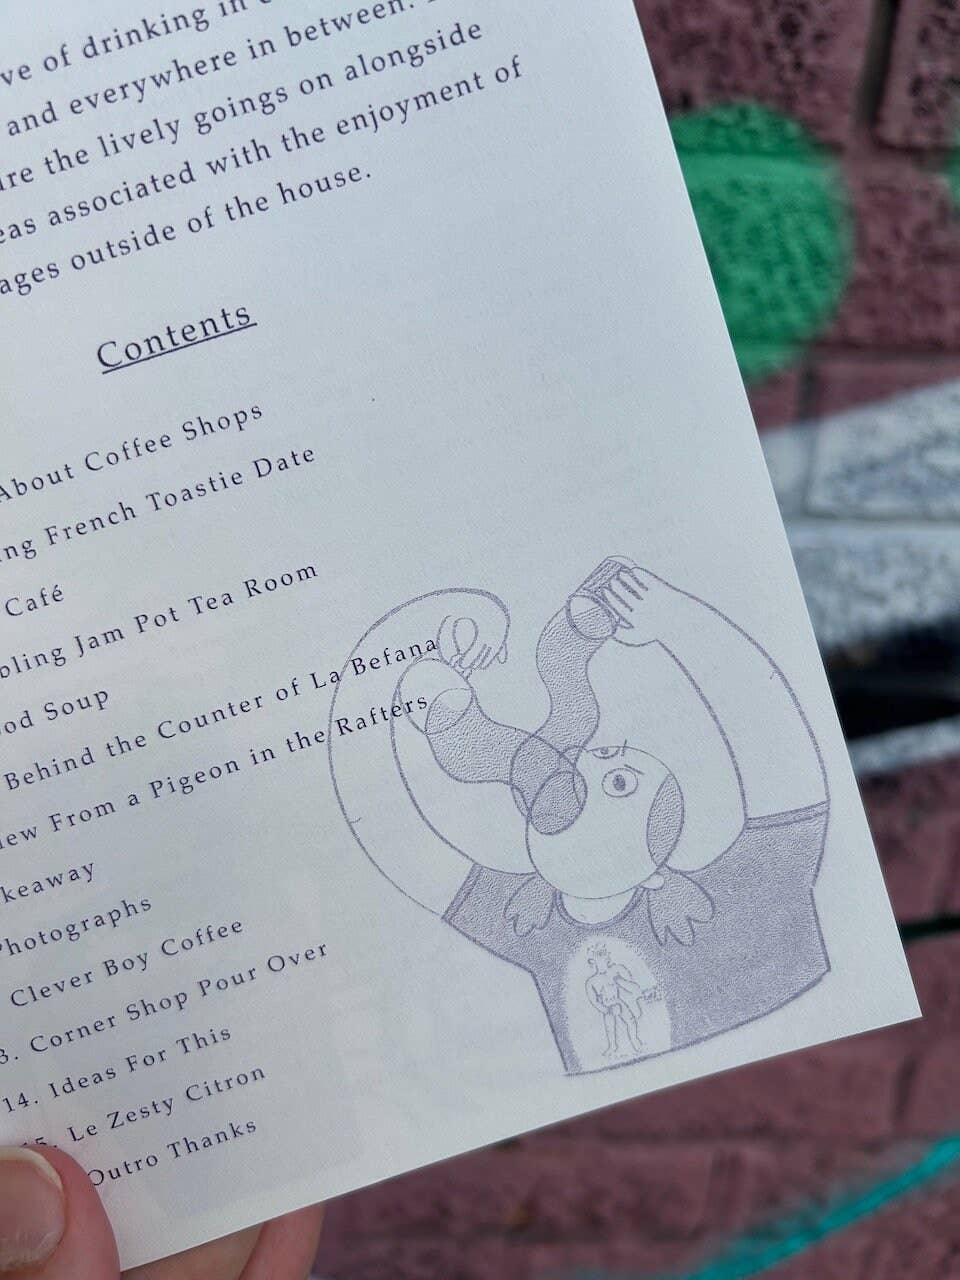 of drinking in
and everywhere in between.
the lively goings on alongside
associated with the enjoyment of
outside of the house.
Contents
About Coffee Shops
French Toastie Date
Café
Jam Pot Tea Room
Soup
Behind the Counter of La Befana
From a Pigeon in the Rafters
Photographs
Clever Boy Coffee
Corner Shop Pour Over
14. Ideas For This
Le Zesty Citron
Outro Thanks